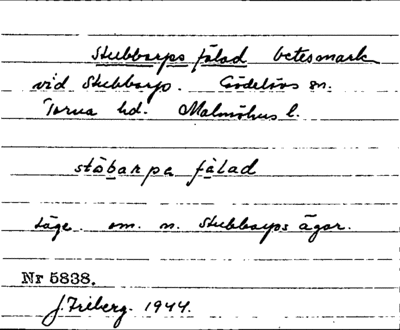 Stubbarps fälad betesmark
vid Stubbarp. Gödelövs sn.
Torna hd. Malmöhus l.
stòbarpa fàlad
Läge. om. n. Stubbarps ägor.
Nr 5838.
J. Friberg. 1944.